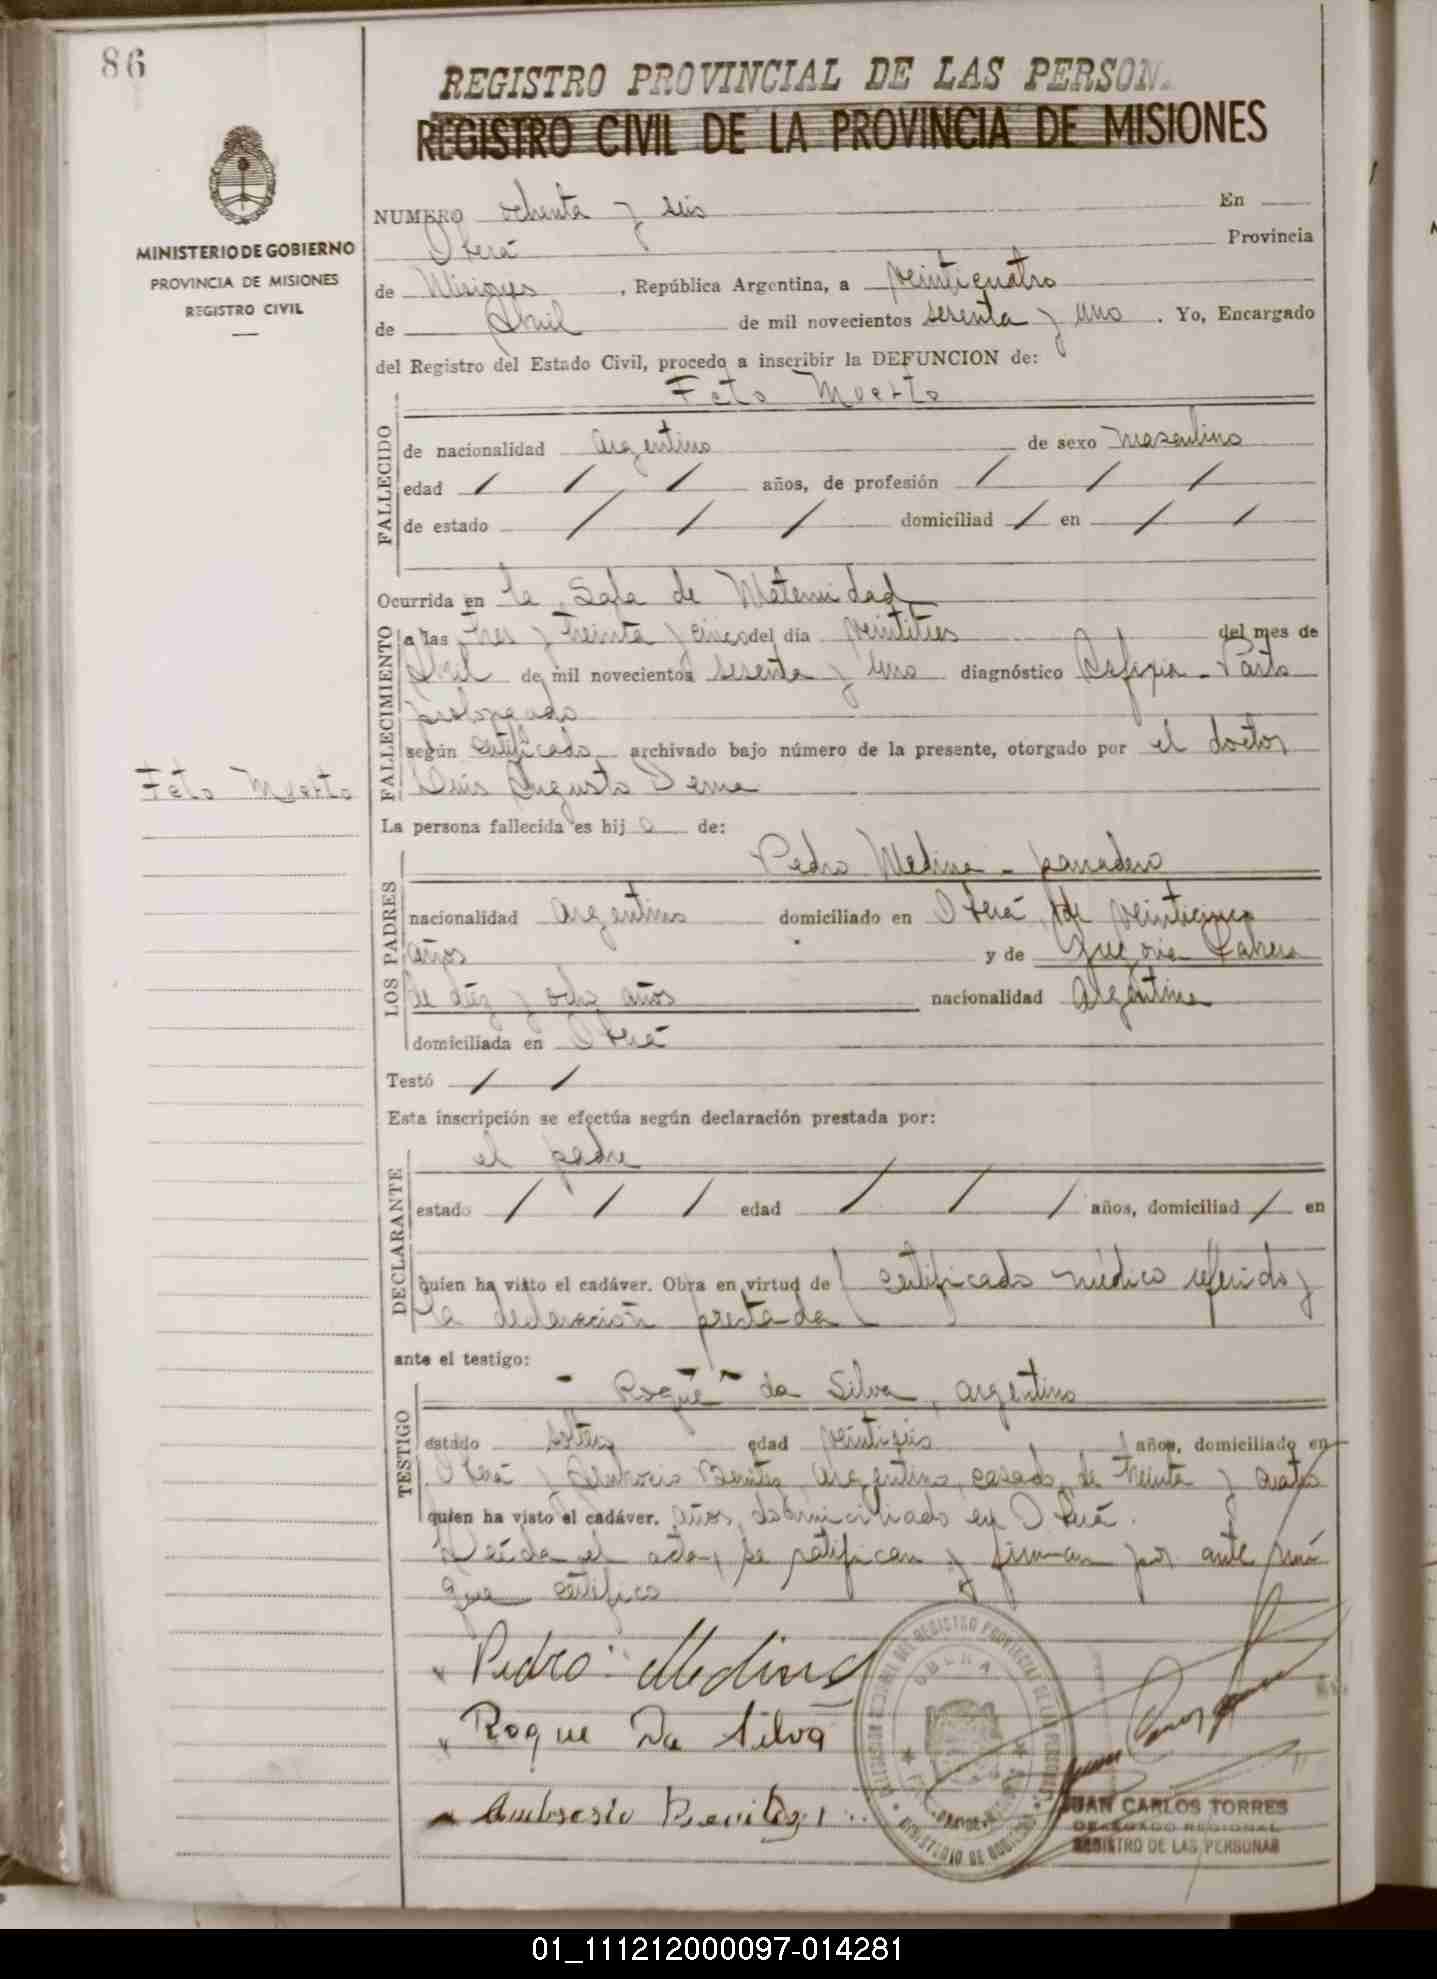 86
REGISTRO PROVINCIAL DE LAS PERSON
REGISTRO CIVIL DE LA PROVINCIA DE MISIONES
MINISTERIO DE GOBIERNO
PROVINCIA DE MISIONES
REGISTRO CIVIL
NUMERO ochenta y seis En
Oberá Provincia
de Misiones, República Argentina, a veinticuatro
de Abril de mil novecientos sesenta y uno. Yo, Encargado
del Registro del Estado Civil, procedo a inscribir la DEFUNCION de:
Feto Muerto
FALLECIDO
de nacionalidad argentino de sexo masculino
edad / / / años, de profesión / / /
de estado / / / domiciliad / en / /
Ocurrida en la Sala de Maternidad
FALLECIMIENTO
a las tres y treinta y cinco del día veintitres del mes de
Abril de mil novecientos sesenta y uno diagnóstico Asfixia - Parto
prolongado
según certificado archivado bajo número de la presente, otorgado por el doctor
Luis Augusto
Feto Muerto
La persona fallecida es hij o de:
Pedro Medina - panadero
LOS PADRES
nacionalidad argentino domiciliado en Oberá, de veinticinco
años y de
de diez y ocho años nacionalidad argentina
domiciliada en Oberá
Testó / /
Esta inscripción se efectúa según declaración prestada por:
el padre
DECLARANTE
estado / / / edad / / / años, domiciliad / en
quien ha visto el cadáver. Obra en virtud de certificado médico referido y
la declaración prestada
ante el testigo:
- Roque da Silva, argentino
TESTIGO
estado soltero edad años, domiciliado en
Oberá y Ambrocio Benitez, argentino, casado, de treinta y cuatro
quien ha visto el cadáver. años, domiciliado en Oberá.
Leída el acta, se ratifican y firman por ante mí
que certifico
Pedro Medina
Roque Da Silva
Ambrosio Benitez
OBERA
MINISTERIO DE GOBIERNO
JUAN CARLOS TORRES
DELEGADO REGIONAL
REGISTRO DE LAS PERSONAS
01_111212000097-014281